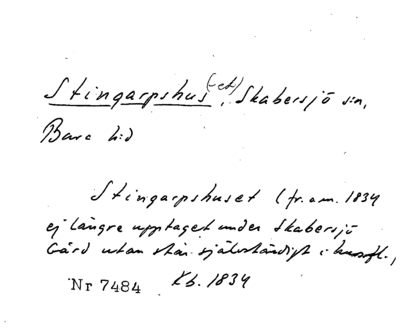 Stingarpshus (-et), Skabersjö s:n,
Bara h:d
Stingarpshuset (fr.o.m. 1834
ej längre upptaget under Skabersjö
Gård utan står självständigt i husfl.,
Kb. 1834
Nr 7484